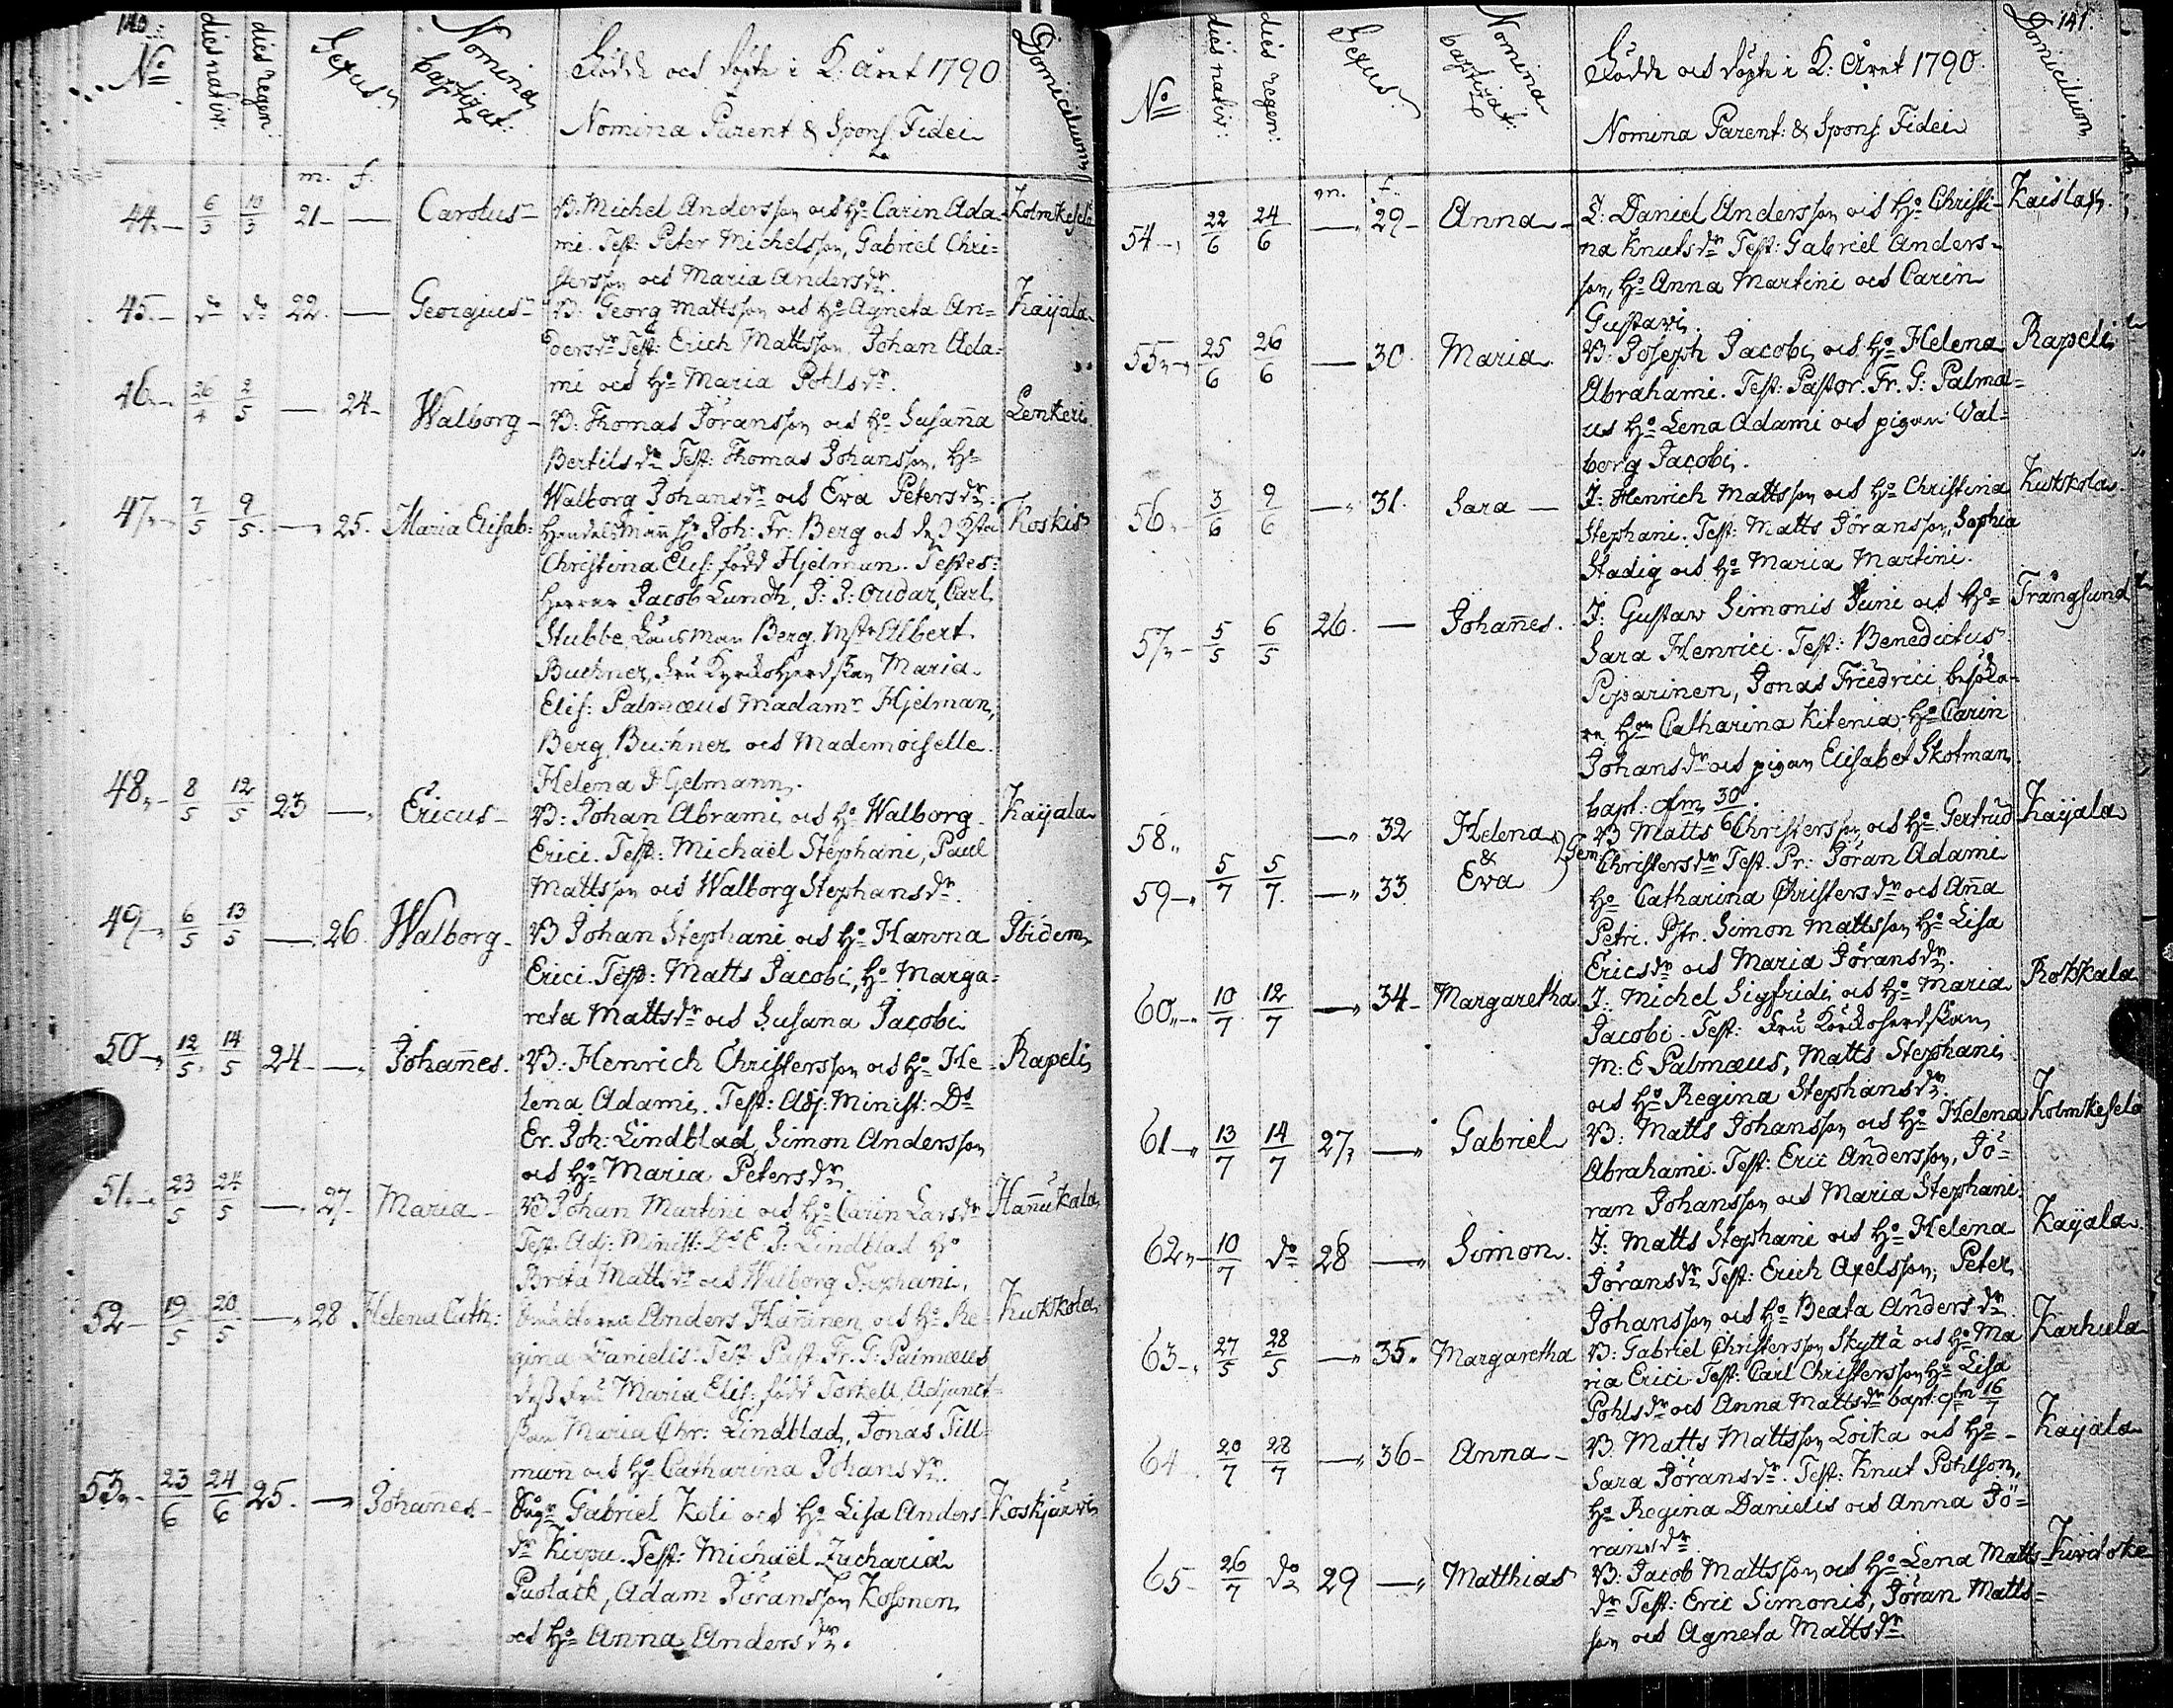 140.
No
dies nativ:
dies regen:
Sexus
Nomina baptizat:
Födde och döpte i K. Året 1790
Nomina Parent & Spons Fidei
Domicilium
m. f.
44. 6/3 10/3 21 — Carolus B. Michel Andersson och Ho Carin Ada- Kolmikeselä
mi. Test: Peter Michelsson, Gabriel Chri-
stersson och Maria Andersdr.
45. do do 22. — Georgius B. Georg Mattsson och Ho Agneta An- Kaÿala
dersdr Test: Erich Mattsson, Johan Ada-
mi och Ho Maria Pohlsdr.
46. 26/4 2/5 — 24 Walborg B: Thomas Jöransson och Ho Susanna Lenkeri
Bertilsdr Test: Thomas Johansson, Ho
Walborg Johansdr och Eva Petersdr.
47. 7/5 9/5 — 25. Maria Elisab: Handelsman Hr Joh: Fr: Berg och dess Koskis
Christina Elis: född Hjelman. Testes:
Herrar Jacob Lundh, J: J: Oudar, Carl
Stubbe, Länsman Berg, Mstr Albert
Buchner, Fru Kyrkoherdskan Maria
Elis: Palmæus Madamr Hjelman,
Berg, Buchner och Mademoiselle
Helena Gelmann.
48. 8/5 12/5 23 — Ericus B: Johan Abrami och Ho Walborg Kaÿala
Erici. Test: Michaël Stephani, Paul
Mattsson och Walborg Stephansdr.
49. 6/5 13/5 — 26. Walborg B Johan Stephani och Ho Hanna Ibidem
Erici. Test: Matts Jacobi, Ho Marga-
reta Mattsdr och Susana Jacobi
50. 12/5 14/5 24 — Johannes. B: Henrich Christersson och Ho He- Rapeli
lena Adami. Test: Adj: Minist: Ds
Er. Joh: Lindblad, Simon Andersson
och Ho Maria Petersdr
51. 23/5 24/5 — 27 Maria B Johan Martini och Ho Carin Larsdr Hannukala
Test: Adj: Minist: Ds E. J: Lindblad Ho
Brita Mattsdr och Walborg Stephani.
52 19/5 20/5 — 28 Helena Cath: Anders Hänninen och Ho Re- Kukkola
gina Danielis. Test: Past: Fr. G: Palmæus
dess fru Maria Elis: född Forsell, Adjunct-
skan Maria Chr: Lindblad, Jonas Till-
mann och Ho Catharina Johansdr.
53. 23/6 24/6 25. — Johannes Gabriel Koli och Ho Lisa Anders- Koskjärvi
dr Kirpu. Test: Michaël Zachariæ
Puolack, Adam Jöransson Kosonen
och Ho Anna Andersdr.
141.
No
dies nativ:
dies regen:
Sexus.
Nomina baptizat:
Födde och döpte i K: Året 1790.
Nomina Parent: & Spons Fidei
Domicilium
m. f.
54 22/6 24/6 — 29 Anna I: Daniel Andersson och Ho Christi- Kaislax.
na Knutsdr Test: Gabriel Anders-
son, Ho Anna Martini och Carin
Gustavi.
55 25/6 26/6 — 30. Maria B: Joseph Jacobi och Ho Helena Rapeli
Abrahami. Test: Pastor Fr. G: Palmæ-
us Ho Lena Adami och pigan Wal-
borg Jacobi.
56 3/6 9/6 — 31. Sara — I: Henrich Mattsson och Ho Christina Kukkola
Stephani. Test: Matts Jöransson, Sophia
Stadig och Ho Maria Martini.
57 5/5 6/5 26. — Johannes. I: Gustaw Simonis Juni och Ho Trångsund
Sara Henrici. Test: Benedictus
Pipparinen, Jonas Friedrici, besöka-
re Hon Catharina Kitenia, Ho Carin
Johansdr och pigan Elisabet Skotman
bapt: 30/6.
58 — 32 Helena B Matts Christersson och Ho Gertrud Kaÿala
& Gem: Christersdr Test. Pr: Jöran Adami
59 5/7 5/7. — 33 Eva Ho Catharina Christersdr och Anna
Petri. Pstr. Simon Mattsson Ho Lisa
Ericsdr och Maria Jöransdr.
60 10/7 12/7 — 34 Margaretha I: Michel Sigfridi och Ho Maria Rokkala
Jacobi. Test: Fru Kyrkoherdskan
M: E Palmæus, Matts Stephani
och Ho Regina Stephansdr.
61 13/7 14/7 27, — Gabriel B: Matts Johansson och Ho Helena Kolmikeselä
Abrahami. Test: Eric Andersson, Jö-
ran Johansson och Maria Stephani.
62 10/7 do 28 — Simon. I: Matts Stephani och Ho Helena Kaÿala.
Jöransdr Test: Erich Axelsson, Peter
Johansson och Ho Beata Andersdr.
63 27/5 28/5 — 35. Margaretha B: Gabriel Christersson Skyttä och Ho Ma Karhula
ria Erici Test: Carl Christersson Ho Lisa
Pohlsdr och Anna Mattsdr bapt: 16/7
64 20/7 28/7 — 36 Anna B. Matts Mattsson Loika och Ho Kaÿala
Sara Jöransdr. Test: Knut Pohlson,
Ho Regina Danielis och Anna Jö-
ransdr
65 26/7 do 29 — Matthias B: Jacob Mattsson och Ho Lena Matts-
dr Test: Eric Simonis, Jöran Matts-
son och Agneta Mattsdr